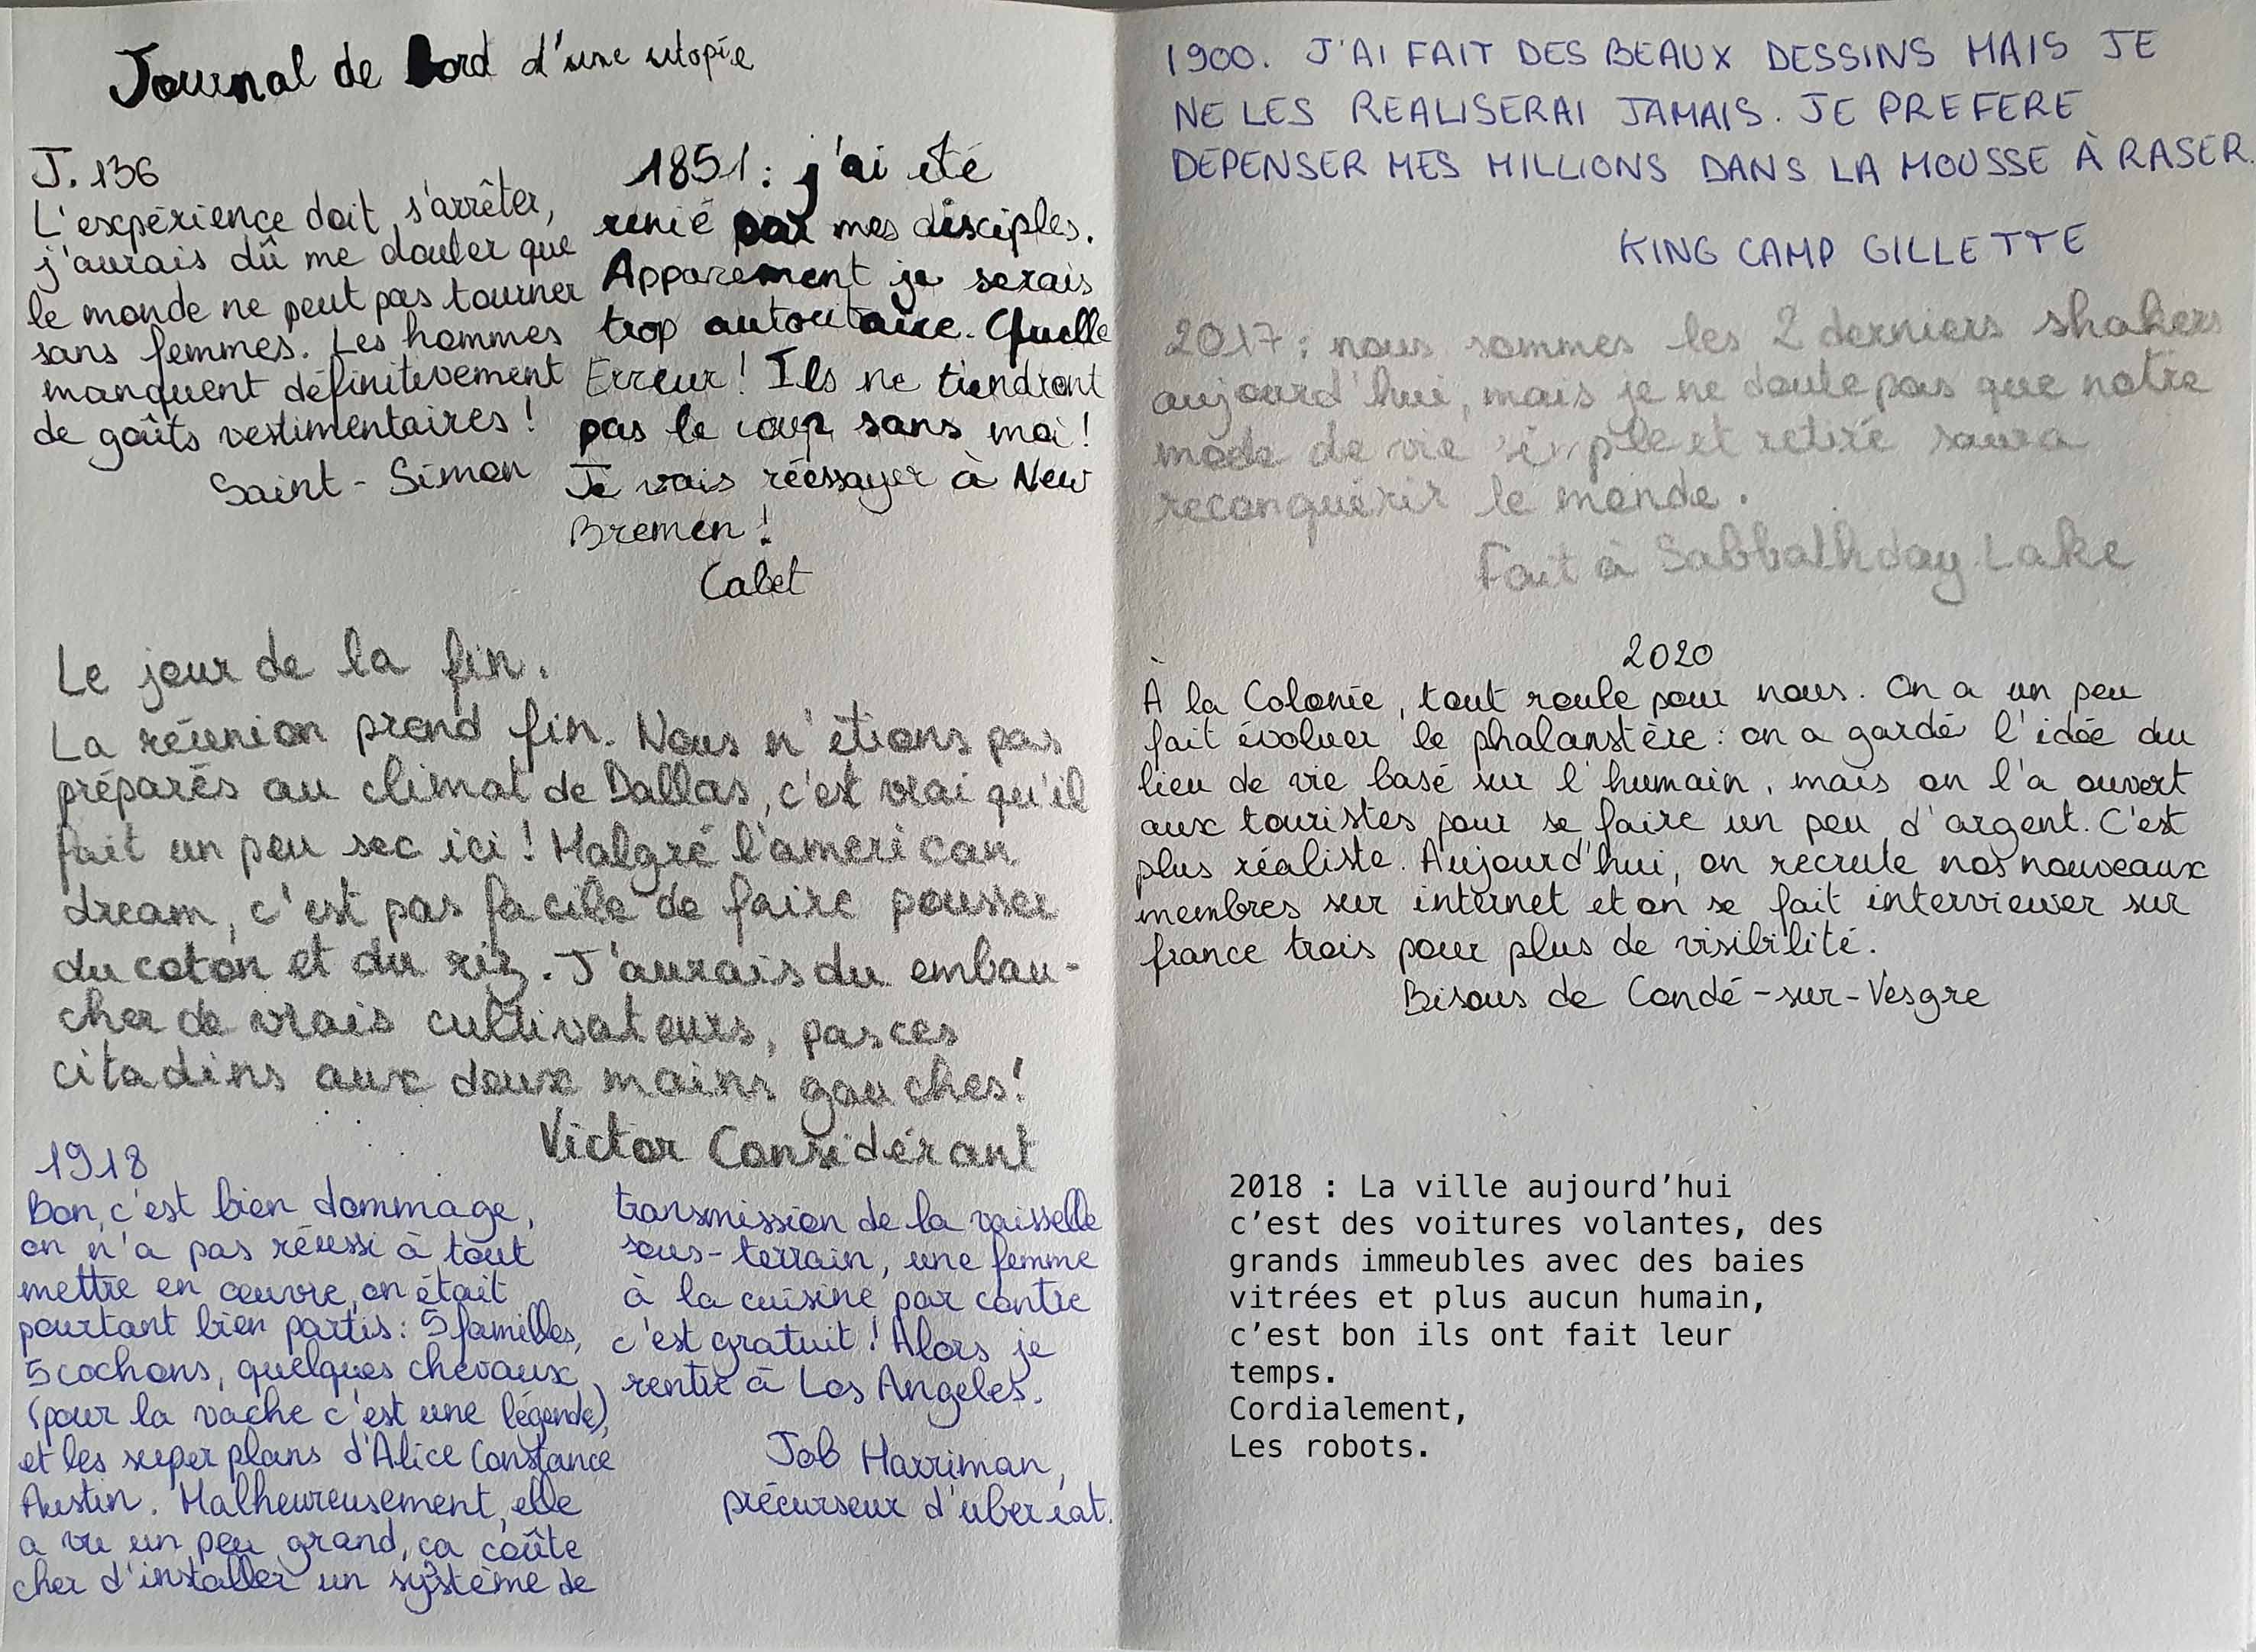 Journal de bord d'une utopie
J. 136
L'expérience doit s'arrêter,
j'aurais dû me douter que
le monde ne peut pas tourner
sans femmes. Les hommes
manquent définitivement
de goûts vestimentaires !
Saint-Simon
1851 : j'ai été
renié par mes disciples.
Apparement je serais
trop autoritaire. Quelle
Erreur ! Ils ne tiendront
pas le coup sans moi !
Je vais réessayer à New
Bremen !
Cabet
Le jour de la fin.
La réunion prend fin. Nous n'étions pas
préparés au climat de Dallas, c'est vrai qu'il
fait un peu sec ici ! Malgré l'american
dream, c'est pas facile de faire pousser
du coton et du riz. J'aurais du embau-
cher de vrais cultivateurs, pas ces
citadins aux deux mains gauches !
Victor Considérant
1918
Bon, c'est bien dommage,
on n'a pas réussi à tout
mettre en œuvre, on était
pourtant bien partis : 5 familles,
5 cochons, quelques chevaux
(pour la vache c'est une légende),
et les super plans d'Alice Constance
Austin. Malheureusement, elle
a vu un peu grand, ça coûte
cher d'installer un système de
transmission de la vaisselle
sous-terrain, une femme
à la cuisine par contre
c'est gratuit ! Alors je
rentre à Los Angeles.
Job Harriman,
précurseur d'uber eat.
1900. J'AI FAIT DES BEAUX DESSINS MAIS JE
NE LES REALISERAI JAMAIS. JE PREFERE
DEPENSER MES MILLIONS DANS LA MOUSSE À RASER.
KING CAMP GILLETTE
2017 : nous sommes les 2 derniers shakers
aujourd'hui, mais je ne doute pas que notre
mode de vie simple et retiré saura
reconquérir le monde.
Fait à Sabbathday Lake
2020
À la Colonie, tout roule pour nous. On a un peu
fait évoluer le phalanstère : on a gardé l'idée du
lieu de vie basé sur l'humain, mais on l'a ouvert
aux touristes pour se faire un peu d'argent. C'est
plus réaliste. Aujourd'hui, on recrute nos nouveaux
membres sur internet et on se fait interviewer sur
france trois pour plus de visibilité.
Bisous de Condé-sur-Vesgre
2018 : La ville aujourd'hui
c'est des voitures volantes, des
grands immeubles avec des baies
vitrées et plus aucun humain,
c'est bon ils ont fait leur
temps.
Cordialement,
Les robots.